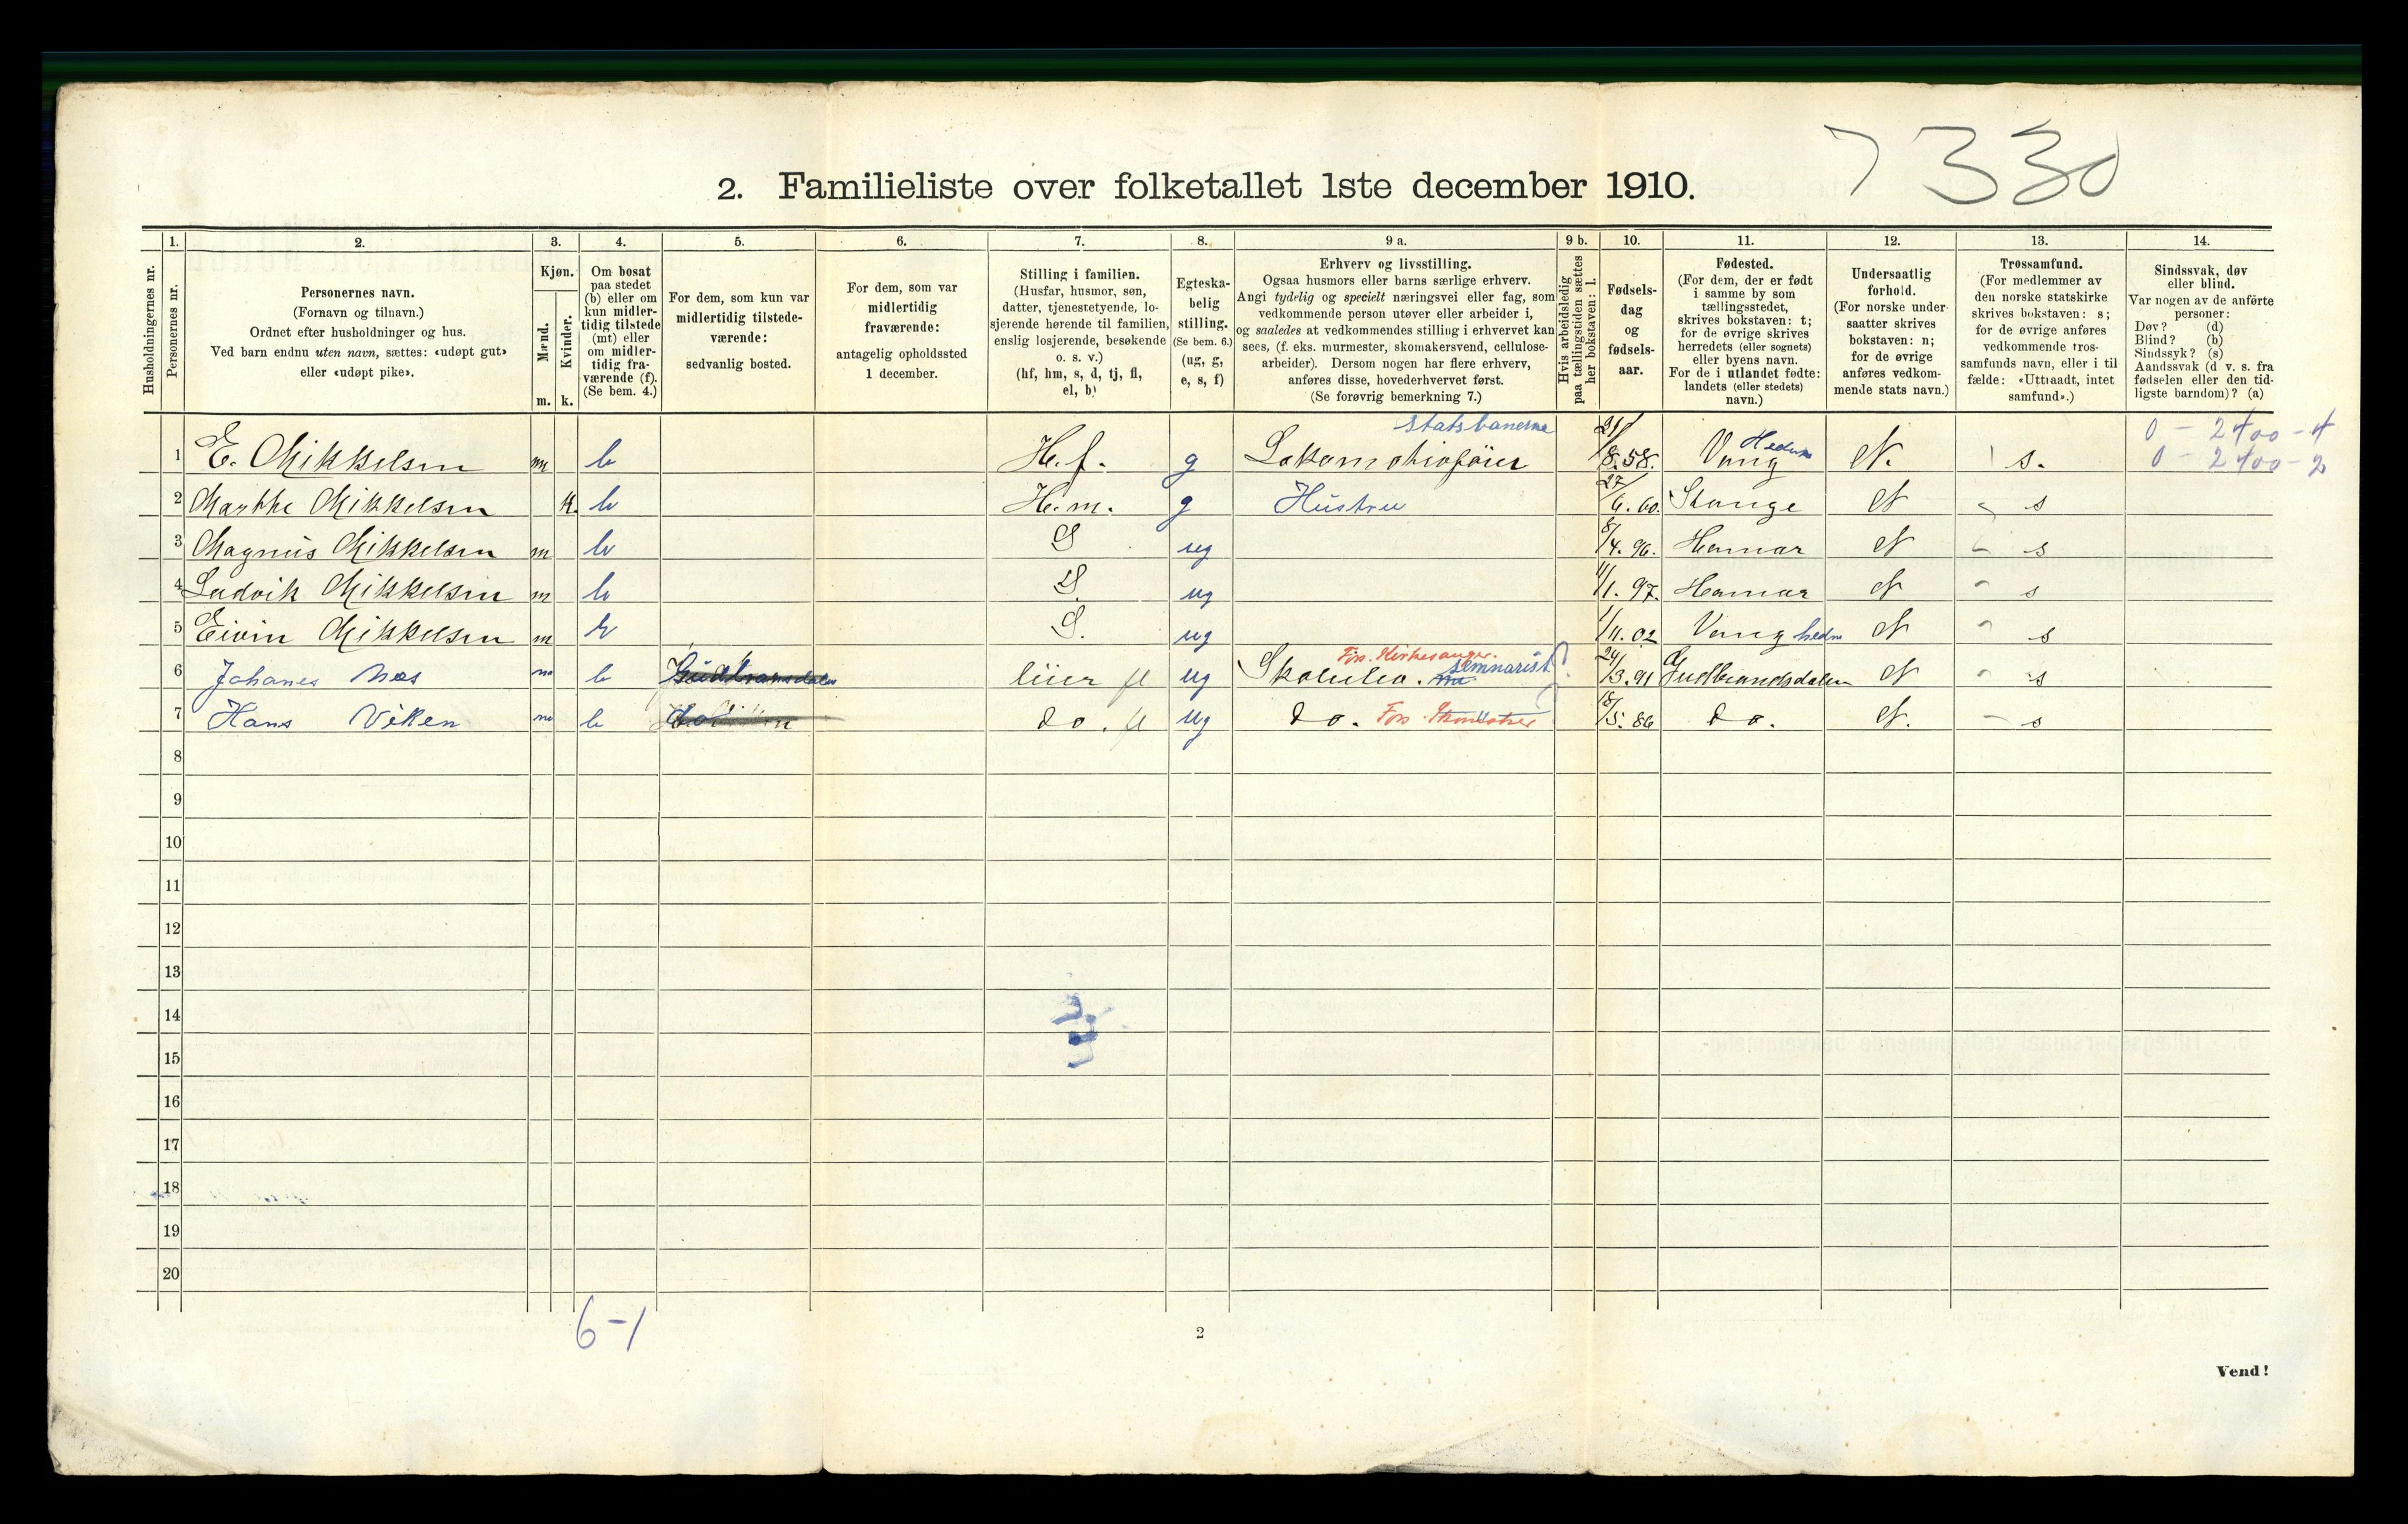 7 330
2. Familieliste over folketallet 1ste december 1910.
Husholdningernes nr.
1. Personernes nr.
2. Personernes navn.
(Fornavn og tilnavn.)
Ordnet efter husholdninger og hus.
Ved barn endnu uten navn, sættes: «udøpt gut»
eller «udøpt pike».
3. Kjøn.
Mænd. m.
Kvinder. k.
4. Om bosat
paa stedet
(b) eller om
kun midler-
tidig tilstede
(mt) eller
om midler-
tidig fra-
værende (f).
(Se bem. 4.)
5. For dem, som kun var
midlertidig tilstede-
værende:
sedvanlig bosted.
6. For dem, som var
midlertidig
fraværende:
antagelig opholdssted
1 december.
7. Stilling i familien.
(Husfar, husmor, søn,
datter, tjenestetyende, lo-
sjerende hørende til familien,
enslig losjerende, besøkende
o. s. v.)
(hf, hm, s, d, tj, fl,
el, b)
8. Egteska-
belig
stilling.
(Se bem. 6.)
(ug, g,
e, s, f)
9 a. Erhverv og livsstilling.
Ogsaa husmors eller barns særlige erhverv.
Angi tydelig og specielt næringsvei eller fag, som
vedkommende person utøver eller arbeider i,
og saaledes at vedkommendes stilling i erhvervet kan
sees, (f. eks. murmester, skomakersvend, cellulose-
arbeider). Dersom nogen har flere erhverv,
anføres disse, hovederhvervet først.
(Se forøvrig bemerkning 7.)
9 b. Hvis arbeidsledig
paa tællingstiden sættes
her bokstaven: l.
10. Fødsels-
dag
og
fødsels-
aar.
11. Fødested.
(For dem, der er født
i samme by som
tællingsstedet,
skrives bokstaven: t;
for de øvrige skrives
herredets (eller sognets)
eller byens navn.
For de i utlandet fødte:
landets (eller stedets)
navn.)
12. Undersaatlig
forhold.
(For norske under-
saatter skrives
bokstaven: n;
for de øvrige
anføres vedkom-
mende stats navn.)
13. Trossamfund.
(For medlemmer av
den norske statskirke
skrives bokstaven: s;
for de øvrige anføres
vedkommende tros-
samfunds navn, eller i til
fælde: «Uttraadt, intet
samfund».)
14. Sindssvak, døv
eller blind.
Var nogen av de anførte
personer:
Døv? (d)
Blind? (b)
Sindssyk? (s)
Aandssvak (d v. s. fra
fødselen eller den tid-
ligste barndom)? (a)
statsbanerne 0 - 2400 - 4
1 E. Mikkelsen m b H.f. g Lokomotivføier 21/8.58. Vang Hedm N. s. 0 - 2400 - 2
2 Marthe Mikkelsen k. b H.m. g Hustru 27/6.60. Stange N s
3 Magnus Mikkelsen m b S ug 8/4.96. Hamar N s
4 Ludvik Mikkelsen m b S. ug 11/1.97. Hamar N s
5 Eivin Mikkelsen m b S. ug 1/11.02 Vang hedm N s
Fors. Kirkesanger.
6 Johanes Næs m b Gudbransdalen lüer fl ug Skoleelev. seminarist 24/3.91 Gudbrandsdalen N s
7 Hans Viken m b do. fl ug do. Fors. 18/5.86 do. N. s
8
9
10
11
12
13
14
15
16
17
18
19
20
6-1
2
Vend!